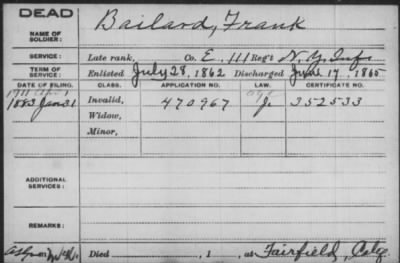 DEAD
NAME OF SOLDIER: Bailard, Frank
SERVICE: Late rank, Co. E, 111 Reg't N. Y. Inf.
TERM OF SERVICE: Enlisted July 28, 1862 Discharged June 17, 1865
DATE OF FILING. CLASS. APPLICATION NO. LAW. CERTIFICATE NO.
1883 Jan 31 Invalid, 470967 352533
Widow,
Minor,
ADDITIONAL SERVICES:
REMARKS:
Died , 1 , at Fairfield,